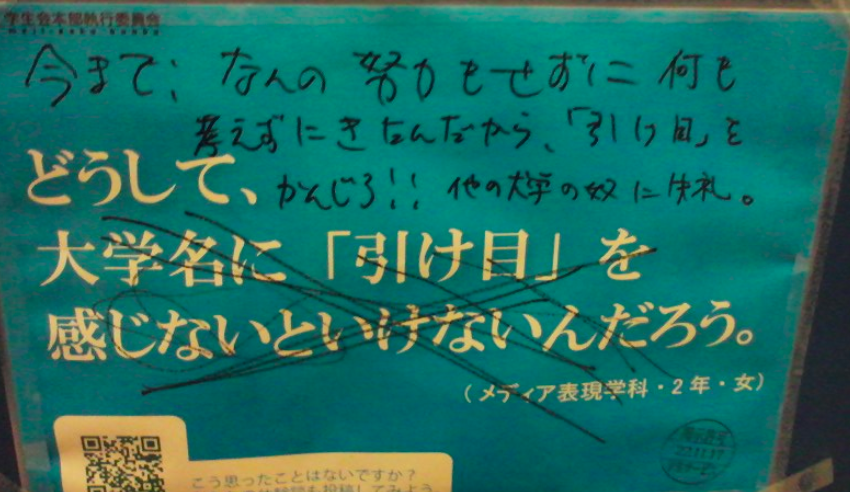 学生会本部執行委員会
今まで、なんの努力もせずに何も
考えずにきたんだから、「引け目」を
かんじろ!! 他の大学の奴に失礼。
どうして、
大学名に「引け目」を
感じないといけないんだろう。
（メディア表現学科・2年・女）
こう思ったことはないですか？